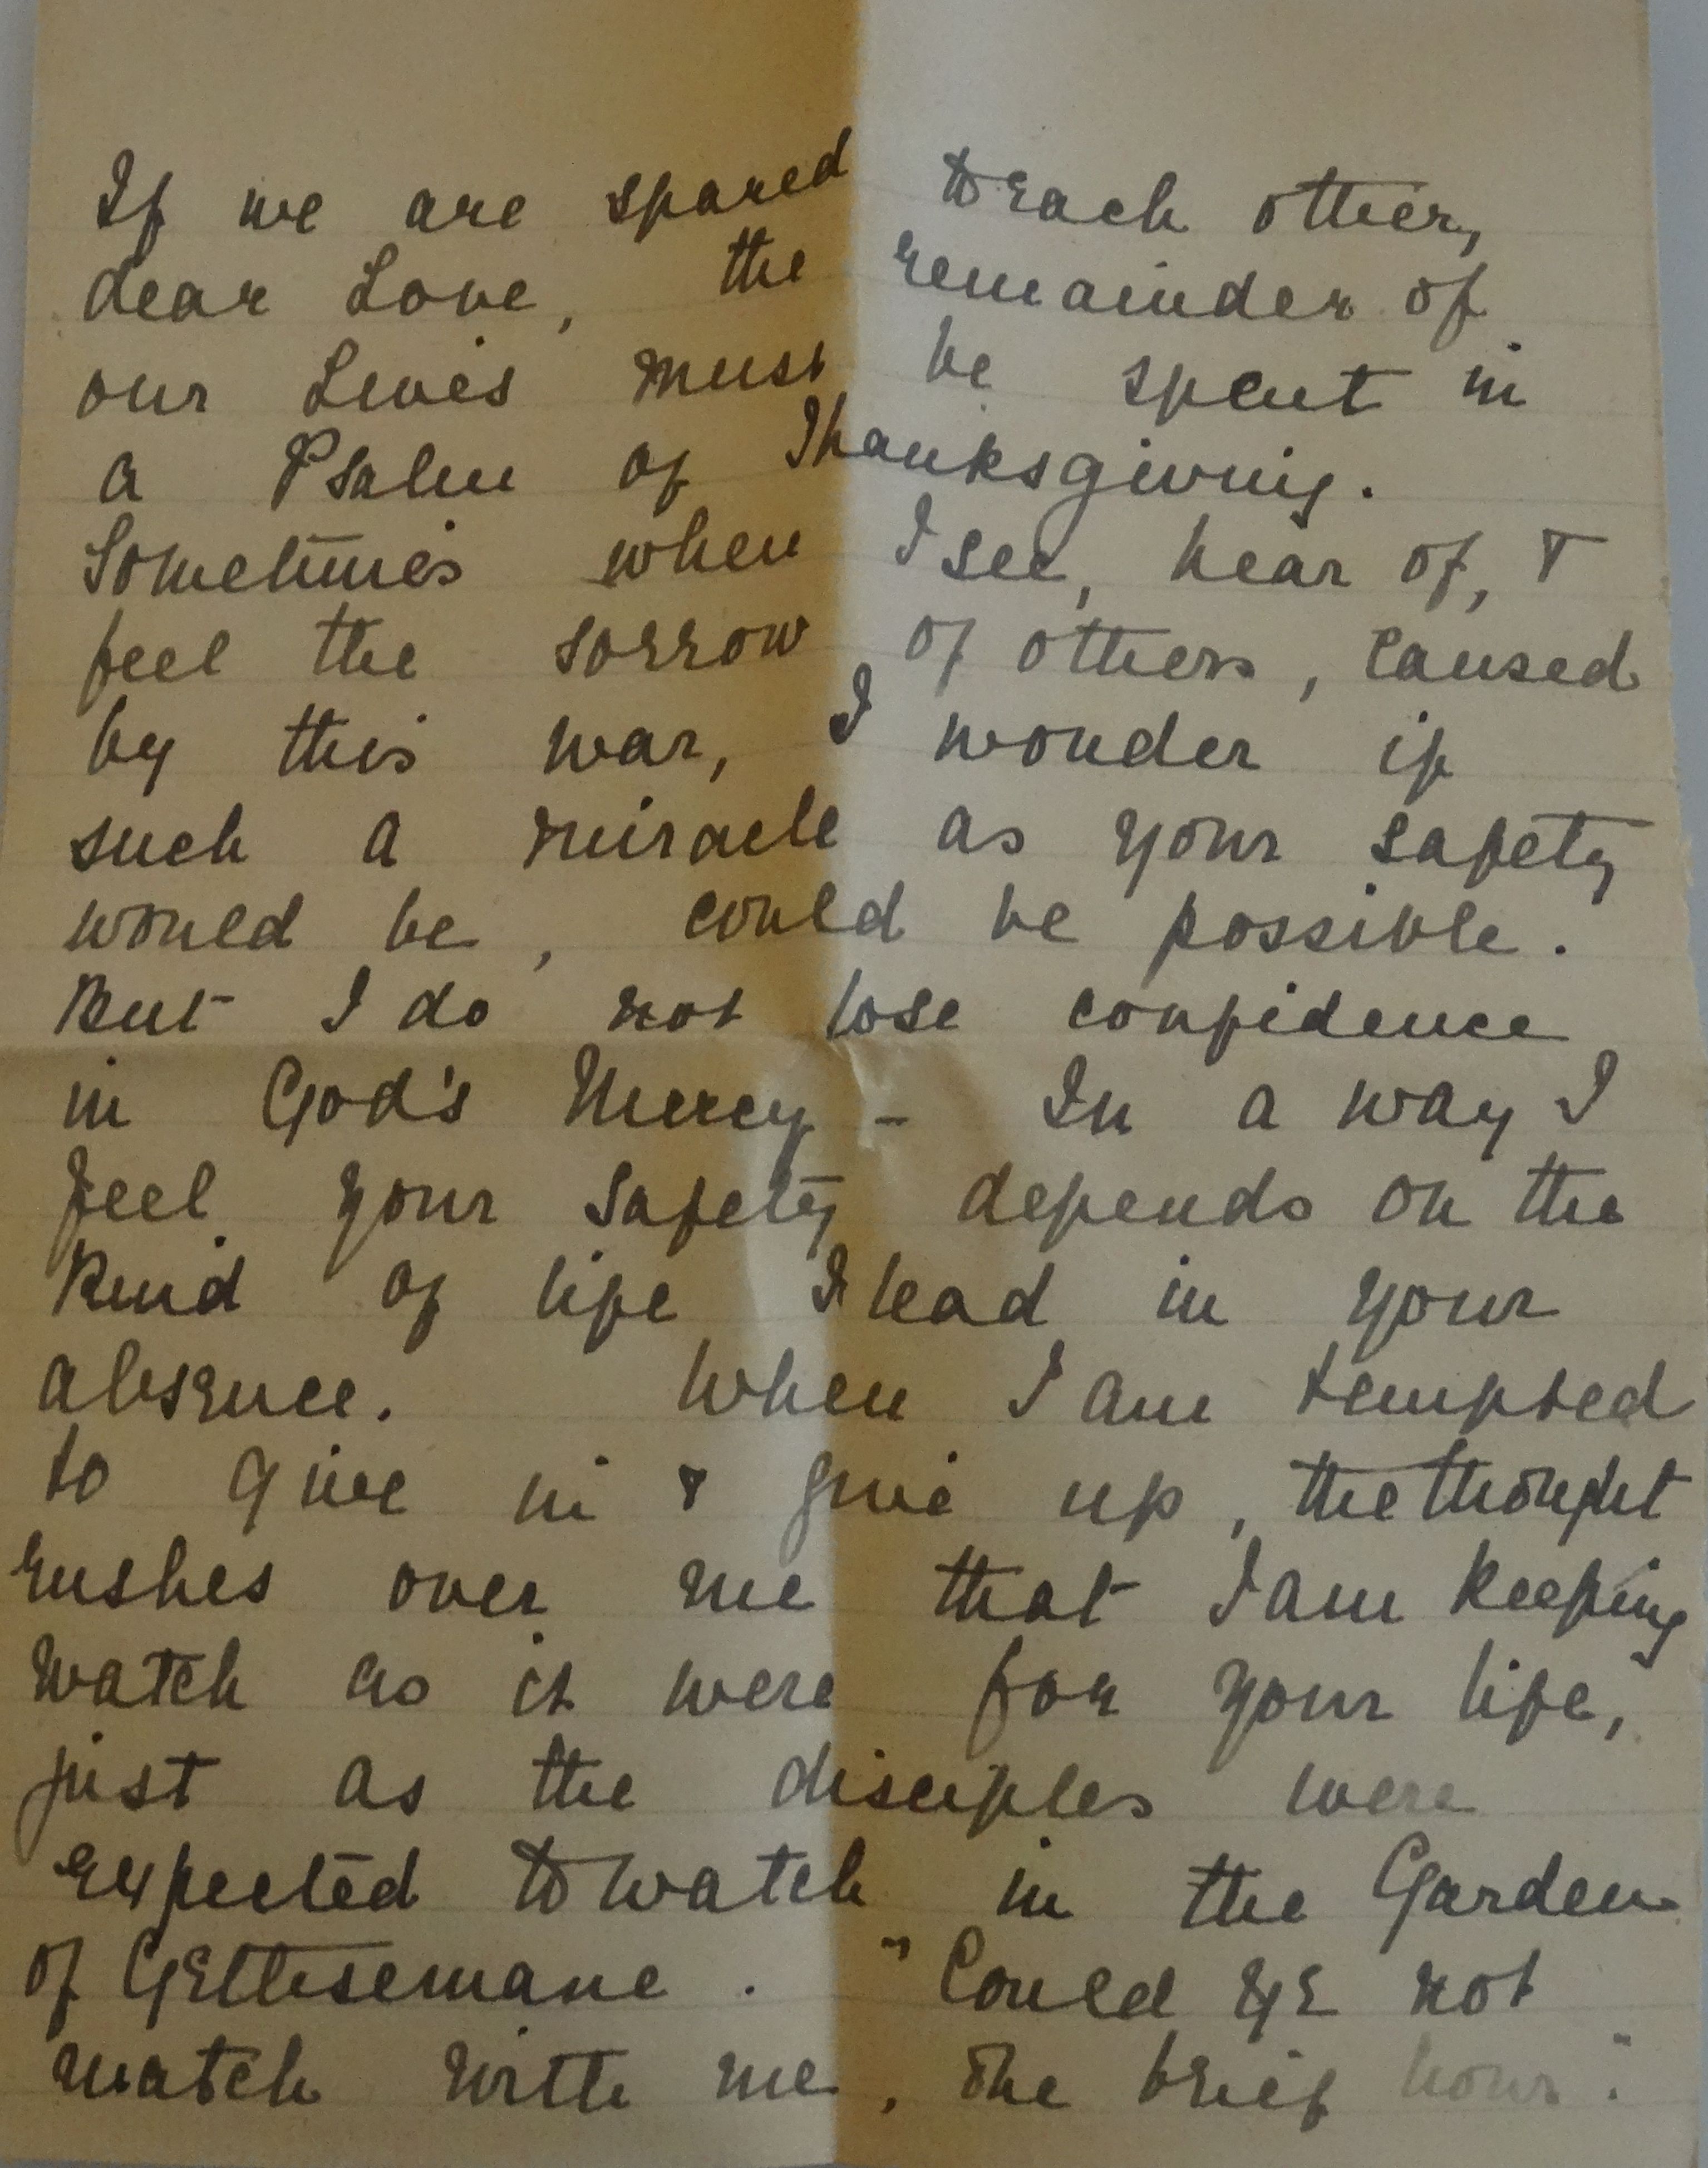 If we are spared to each other,
dear Love, the remainder of
our Lives must be spent in
a Psalm of Thanksgiving.
Sometimes when I see, hear of, &
feel the sorrow of others, caused
by this war, I wonder if
such a miracle as your safety
would be, could be possible.
But I do not lose confidence
in God's Mercy - In a way I
feel your safety depends on the
Kind of life I lead in your
absence. When I am tempted
to give in & give up, the thought
rushes over me that I am keeping
watch as it were for your life,
just as the disciples were
expected to watch in the Garden
of Gethsemane. "Could ye not
watch with me, One brief hour".